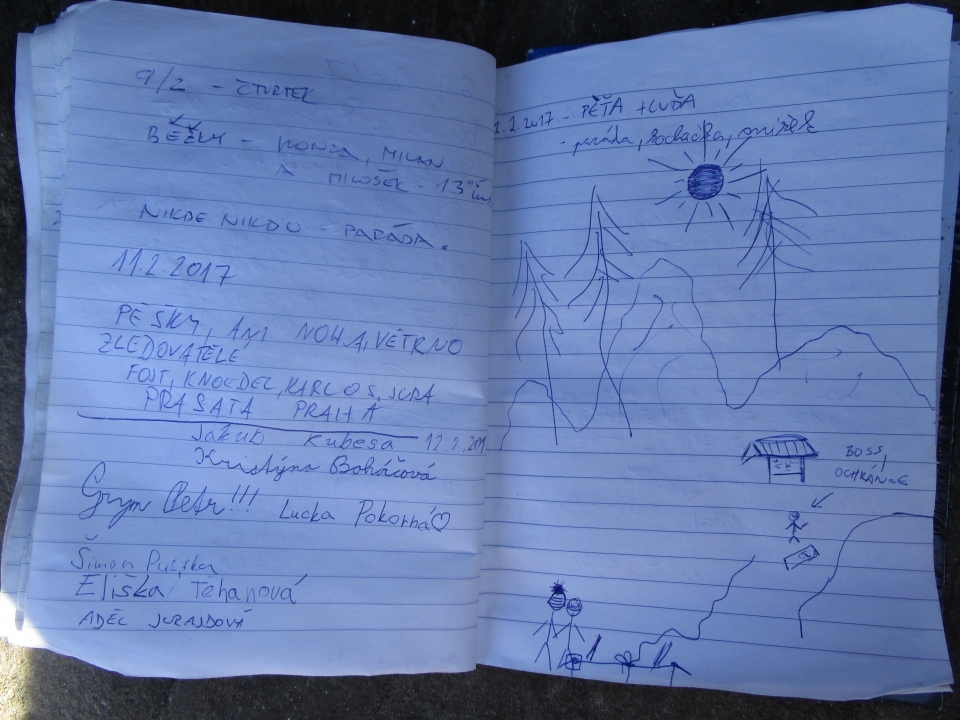 9/2 - ČTVRTEK
BĚŽKY - HONZA, MILAN
A MILOŠEK - 13°
NIKDE NIKDO - PARÁDA.
11.2.2017
PĚŠKY, ANI NOHA, VĚTRNO
ZLEDOVATĚLÉ
FOJT, KNOEDEL, KARLOS, JURA
PRASATA PRAHA
Jakub Kubesa 12.2.201
Kristýna Boháčová
Grym Petr!!!
Lucka Pokorná♡
Šimon
Eliška Těhanová
ADÉL JURAJDOVÁ
2.2.2017 - PÉŤA + LUĎA
- paráda, kochačka, snížek
BOSS
OCHRÁNCE